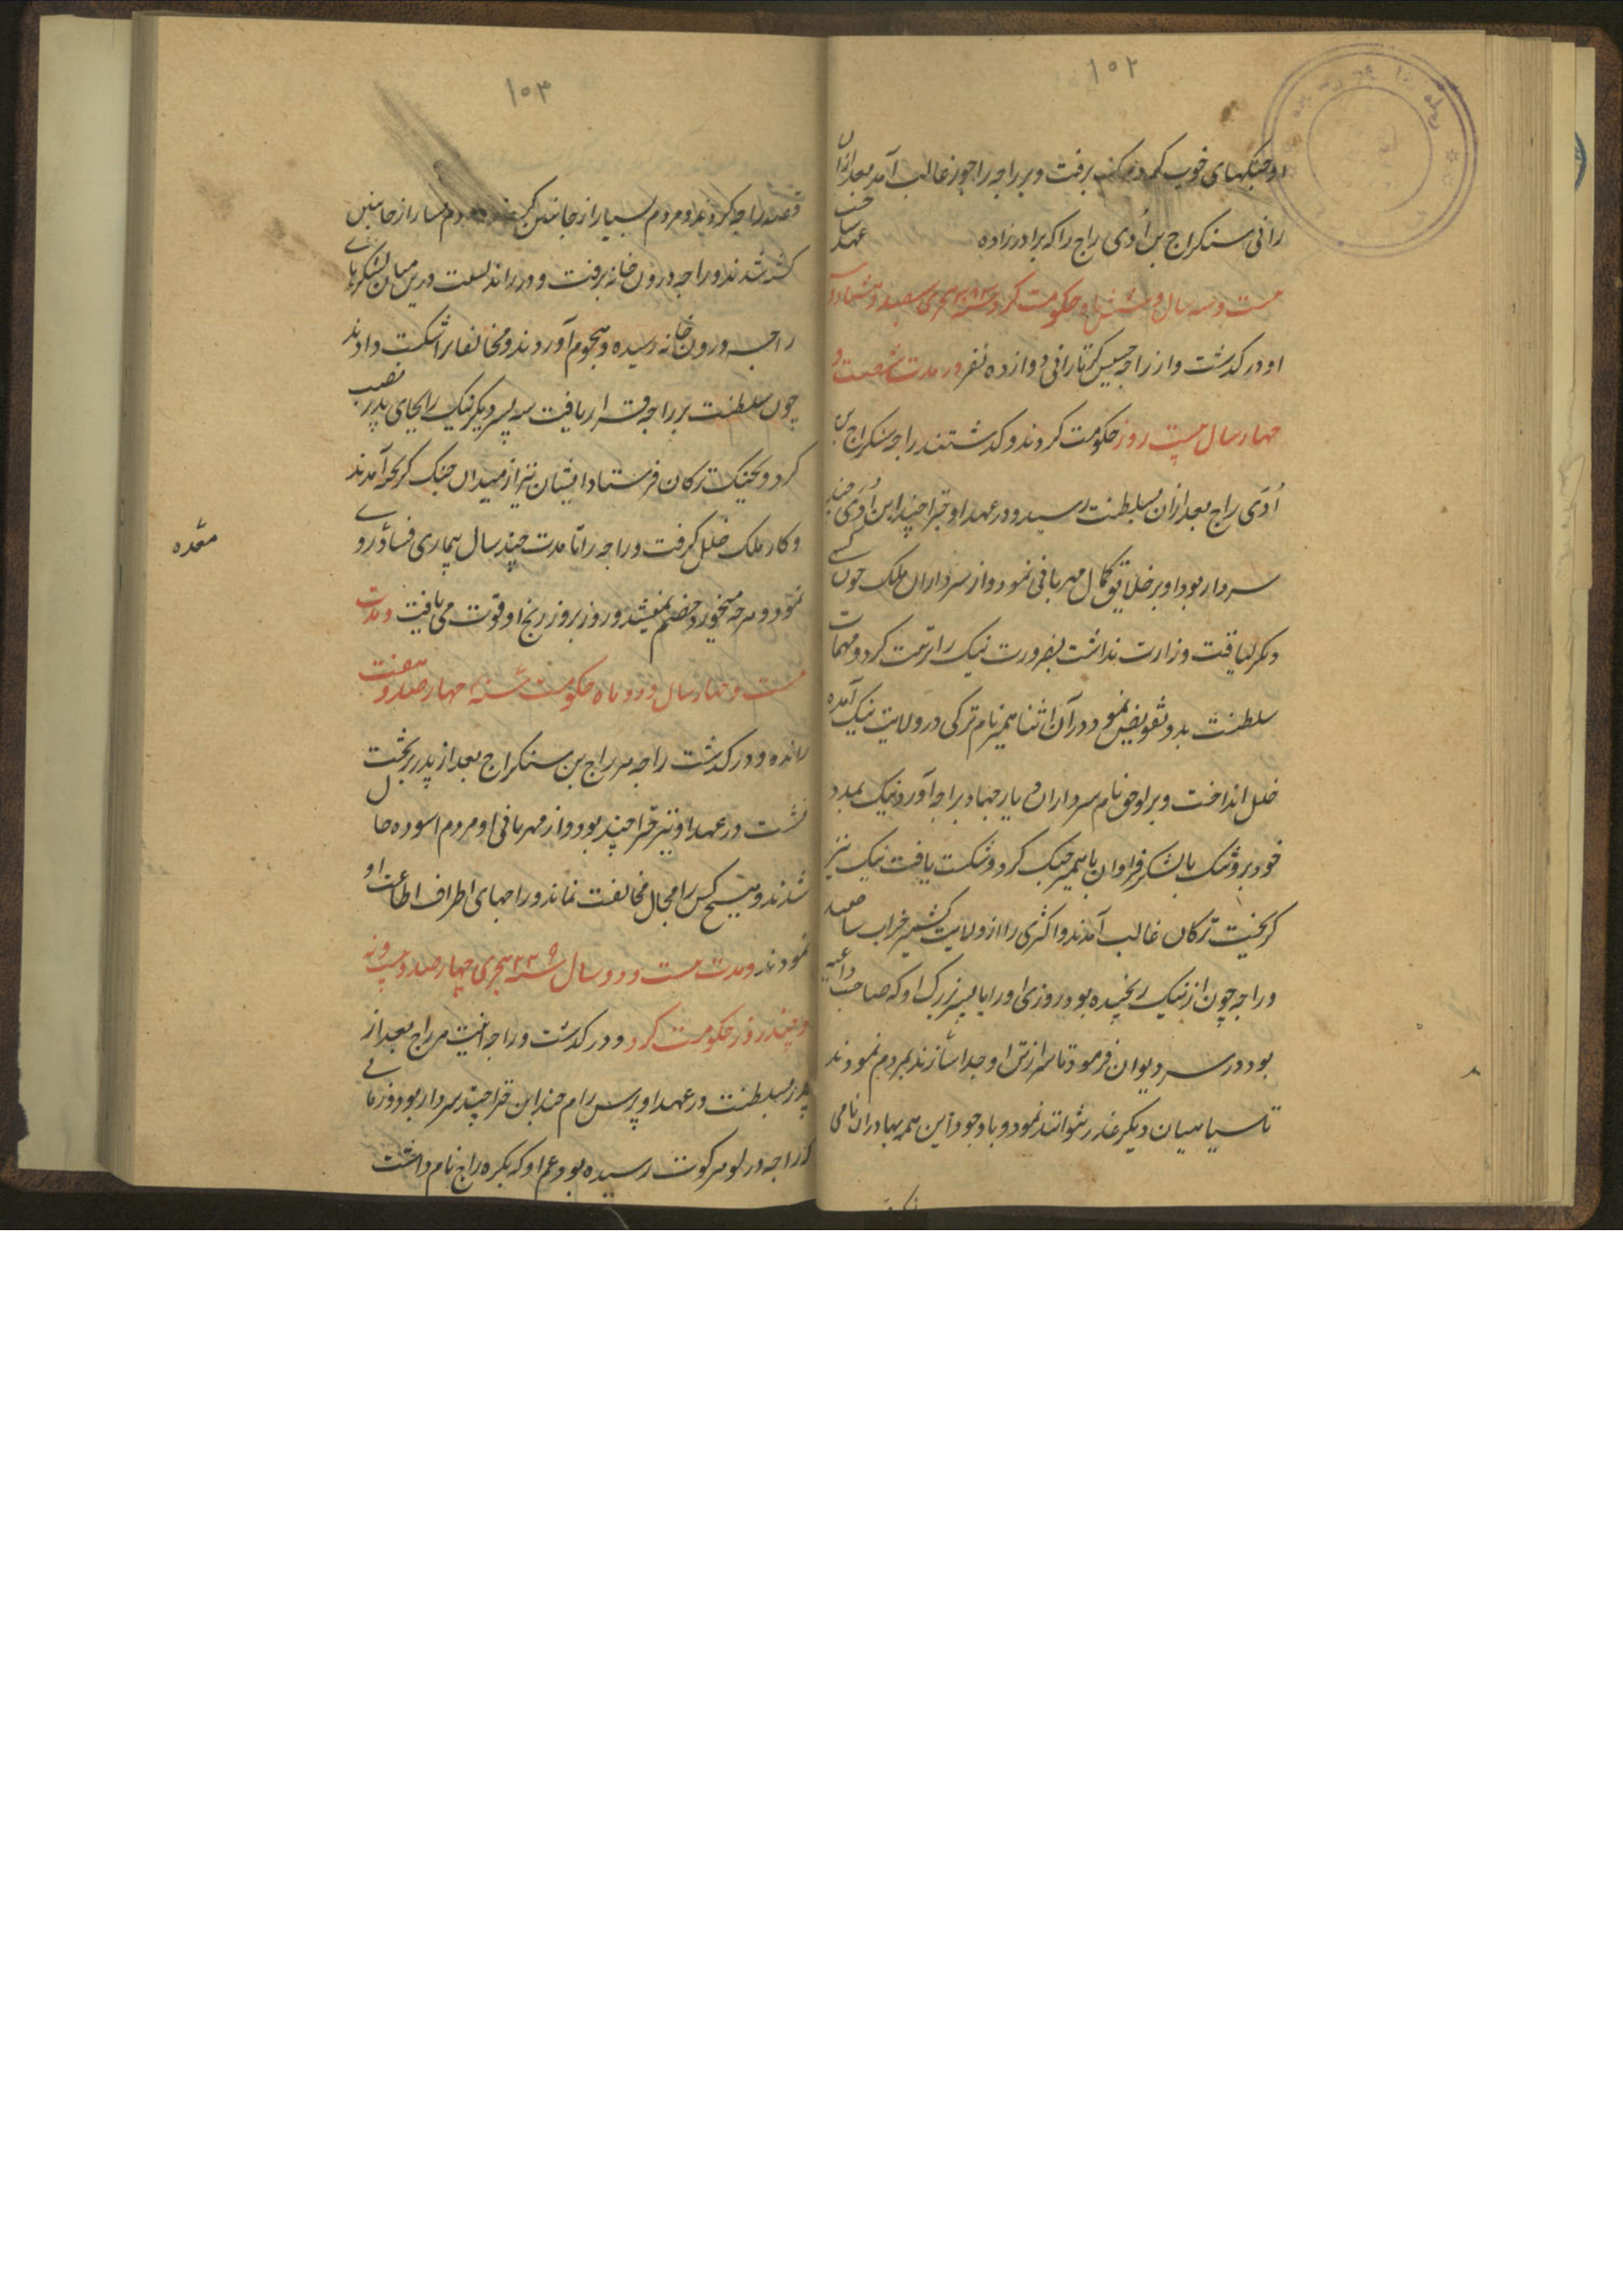 ۱۰۲
او جنگهای خوب کرد برفت و بر راجه راجور غالب آمد بعد ازان
رانی سنکراج بن اُدی راج را که برادرزاده
بیست و سه سال و شش ماه حکومت کرد
او در گذشت و از راجه تا رانی دوازده نفر در مدت شصت و
چهار سال بیست روز حکومت کردند و گذشتند راجه سنکراج بن
اُدی راج بعد ازان بسلطنت رسید و در عهد او قرا چند ابن اُدی چند
سردار بود او بر خلایق کمال مهربانی نمود و از سرداران ملک چون کسی
دیگر لیاقت وزارت نداشت بضرورت نیک را تربیت کرد و مهمات
سلطنت بدو تفویض نمود در آن اثنا همیر نام ترکی در ولایت نیک آمده
خلل انداخت و بر لوحی نام سرداران
خود با لشکر فراوان با همیر جنگ کرد و شکست یافت نیک نیز
گریخت ترکان غالب آمدند و اکثری را از ولایت کشمیر خراب ساختند
و راجه چون از نیک رنجیده بود روزی او را با پسر بزرگ او که صاحب داعیه
بود در سر دیوان فرمود تا سر از تن او جدا سازند بمردم نمودند
تا سپاهیان دیگر غدر نتوانند نمود و با وجود این همه بهادران نامی
۱۰۳
قصد راجه کردند و مردم بسیار از جانبین
کشته شدند و راجه درون خانه برفت و در را دربست درین میان لشکرهای
راجه درون خانه رسیده و هجوم آوردند و مخالفانرا شکست دادند
چون سلطنت بر راجه قرار یافت سه پسر دیگر نیک را بجای پدر نصب
کرد و بجنگ ترکان فرستاد ایشان نیز از میدان جنگ گریخته آمدند
و کار ملک خلل گرفت و راجه را تا مدت چند سال بیماری فساد روی
نمود و هرچه میخورد هضم نمیشد و روز بروز رنج او قوت می یافت و مدت
معده
بیست و چهار سال و دو ماه حکومت سنه چهارصد و هفت
رانده و در گذشت راجه هر راج بن سنکراج بعد از پدر بر تخت
نشست در عهد او نیز قرا چند بود و از مهربانی او مردم اسوده حال
شدند و هیچ کس را مجال مخالفت نماند و راجهای اطراف اطاعت او
نمودند و مدت بیست و دو سال سنه ۴۲۹ هجری چهارصد و بیست و نه
و چند روز حکومت کرد و در گذشت و راجه اننت بن هر راج بعد از
پدر بسلطنت در عهد او پرس رام چند ابن قرا چند سردار بود و زمانی
که راجه در لوهر کوت رسیده بود عم او که بکره راج نام داشت